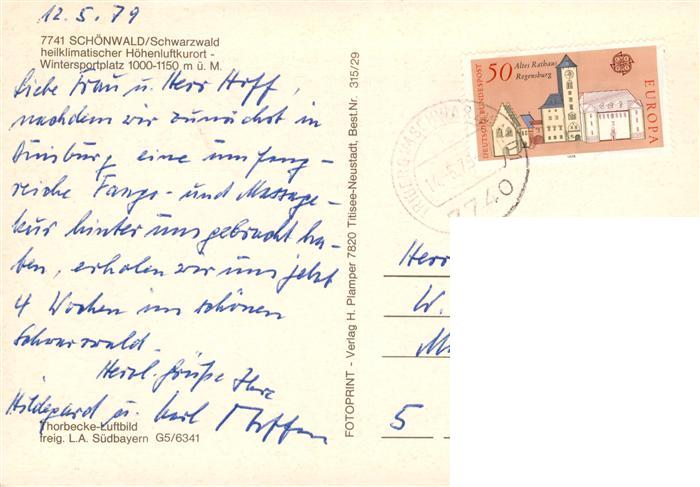 12.5.79
7741 SCHÖNWALD/Schwarzwald
heilklimatischer Höhenluftkurort -
Wintersportplatz 1000-1150 m ü. M.
Liebe Frau u. Herr Hoff,
nachdem wir zunächst in
Duisburg eine umfang-
reiche Fango- und Massage-
kur hinter uns gebracht ha-
ben, erholen wir uns jetzt
4 Wochen im schönen
Schwarzwald.
Herzl. Grüße Ihre
Hildegard u. Karl
Thorbecke-Luftbild
freig. L.A. Südbayern G5/6341
FOTOPRINT - Verlag H. Plamper 7820 Titisee-Neustadt, Best.Nr. 315/29
50
Altes Rathaus
Regensburg
DEUTSCHE BUNDESPOST
EUROPA
1978
7740
Herr
W.
5